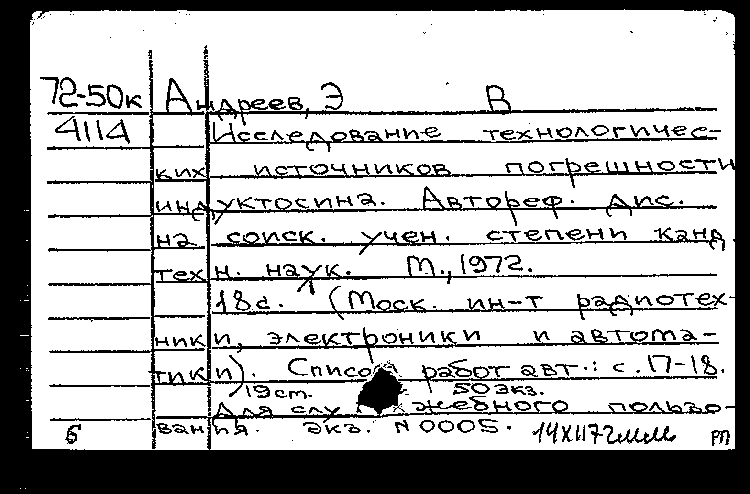 72-50к Андреев, Э В
4114 Исследование технологичес-
ких источников погрешности
индуктосина. Автореф. дис.
на соиск. учен. степени канд.
техн. наук. М., 1972.
18с. (Моск. ин-т радиотех-
ники, электроники и автома-
тики). Список работ авт.: с. 17-18.
19 ст. 50 экз.
Для служебного пользо-
вания. экз. N 0005.
6 РП